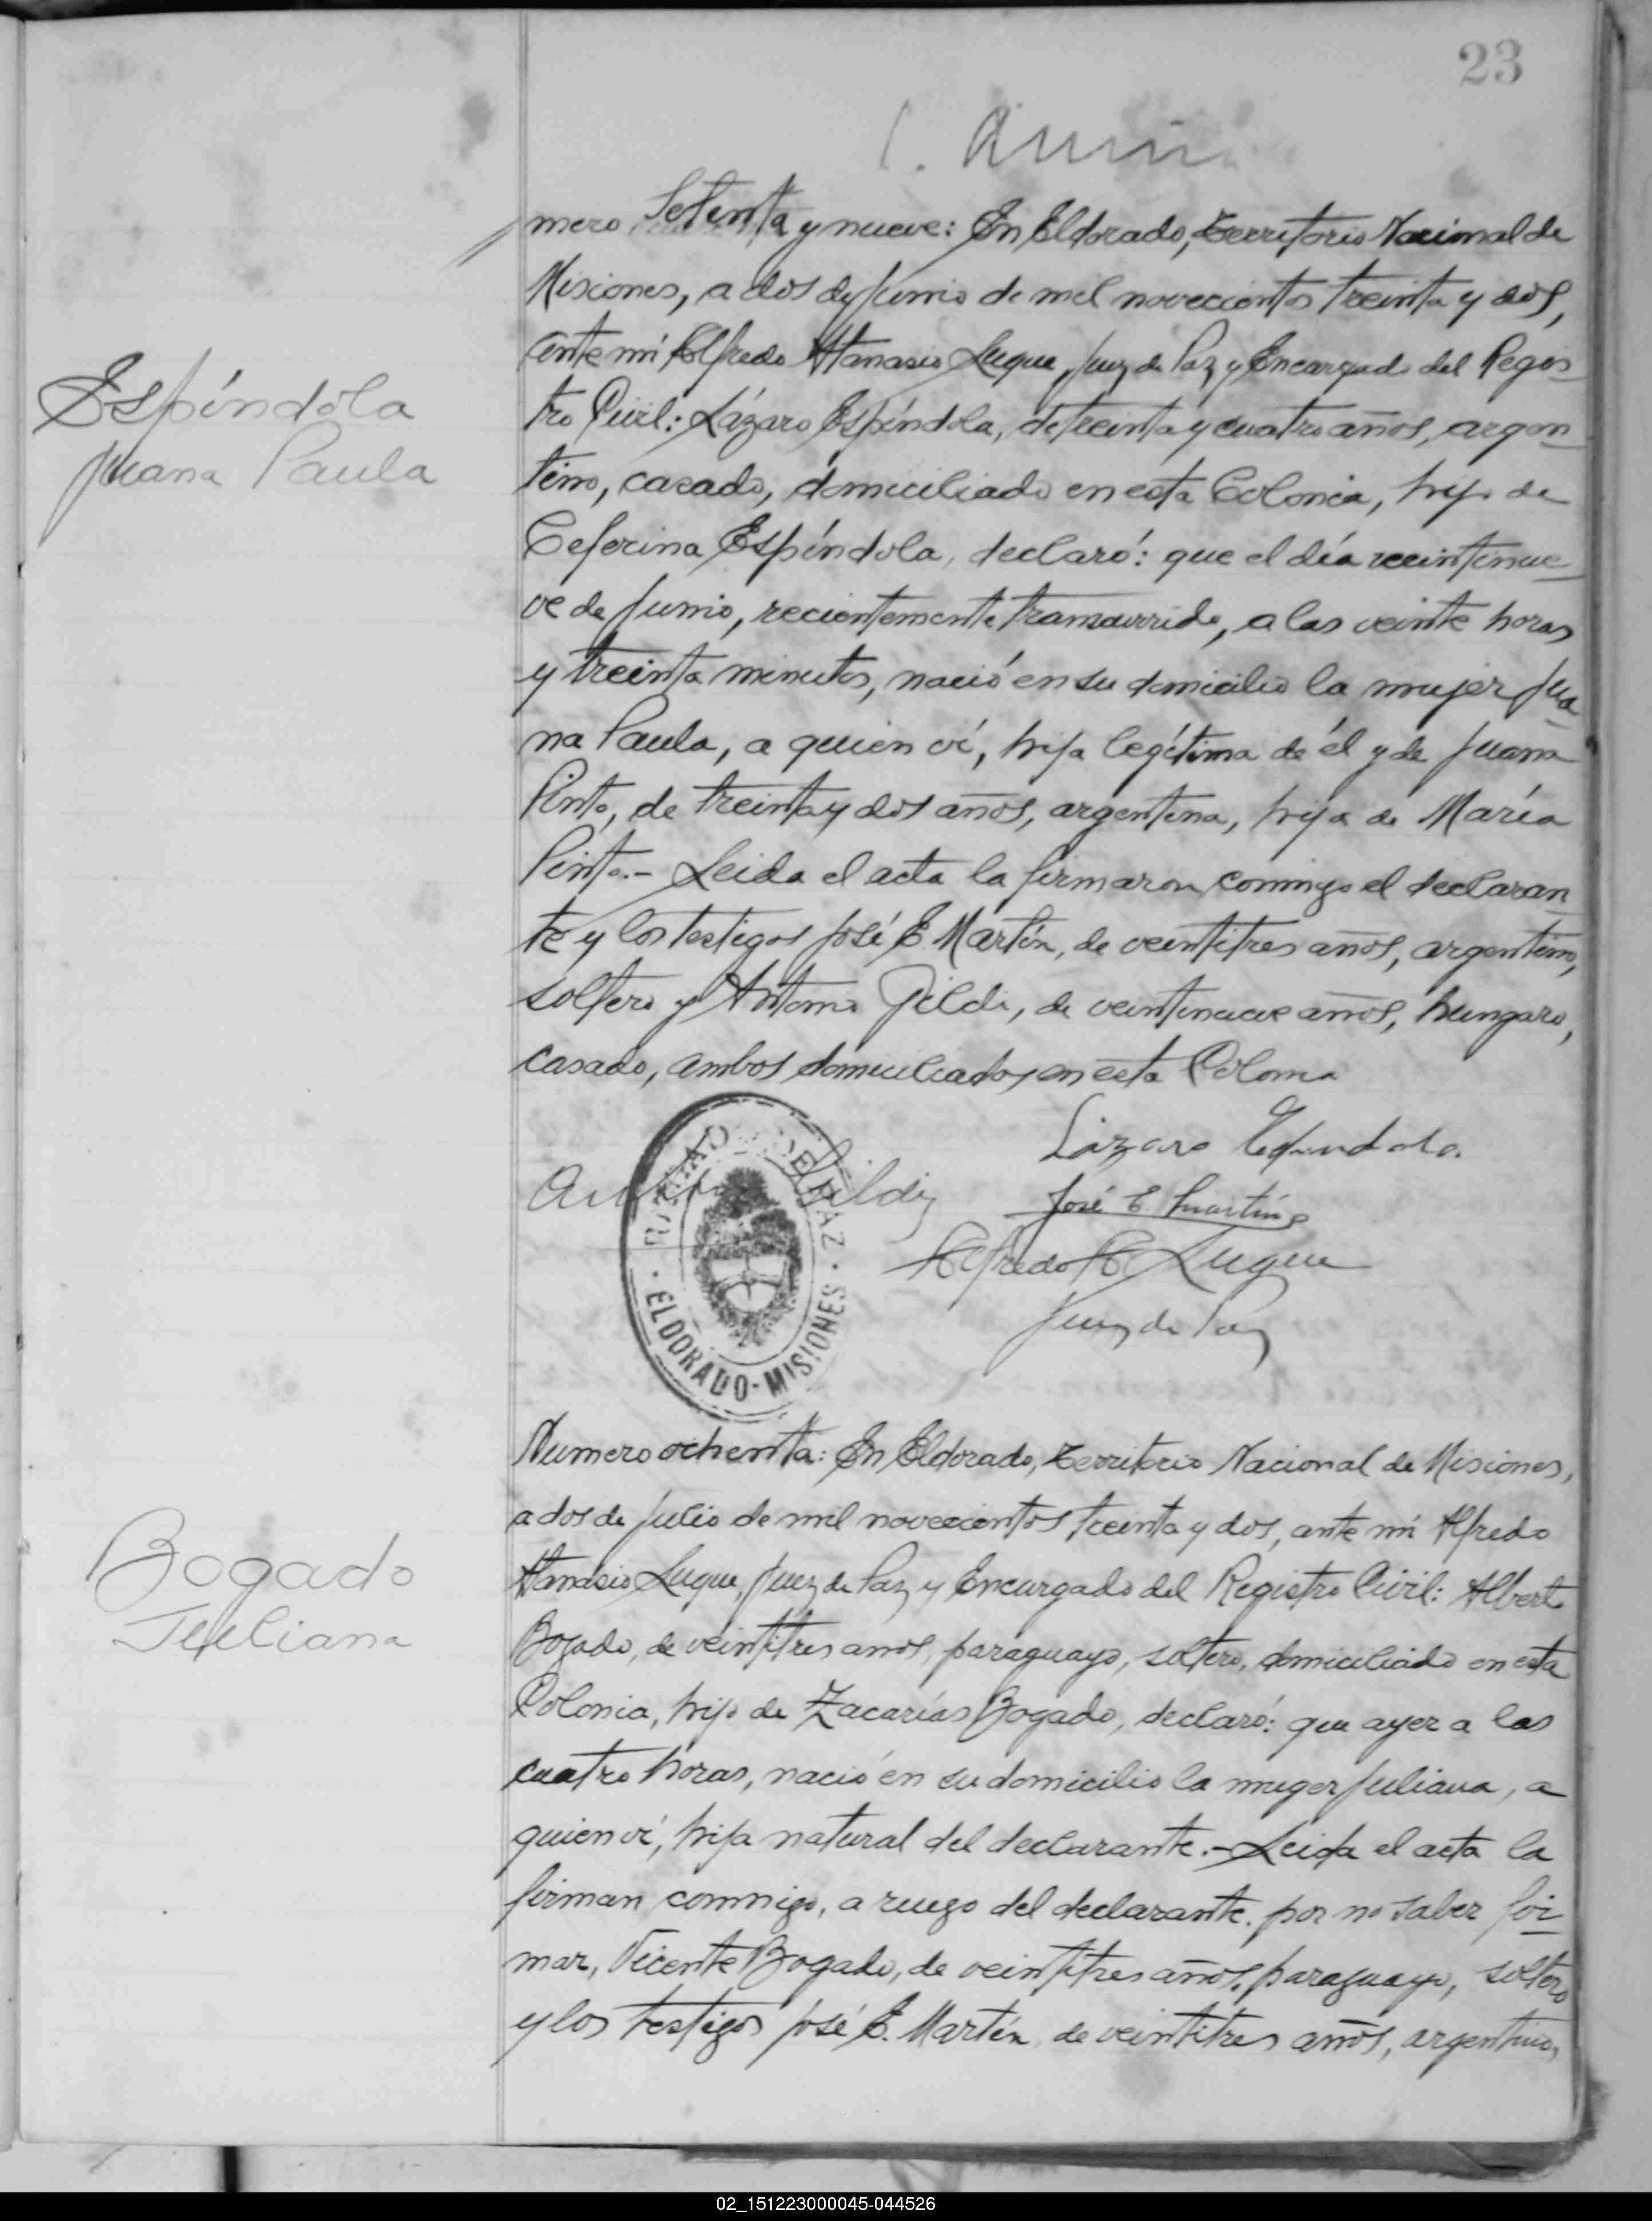 23
mero Setenta y nueve: En Eldorado, Territorio Nacional de
Misiones, a dos de Junio de mil novecientos treinta y dos,
ante mi Alfredo Atanasio Luque, Juez de Paz y Encargado del Regis
tro Civil: Lázaro Espíndola, de treinta y cuatro años, argen
tino, casado, domiciliado en esta Colonia, hijo de
Ceferina Espíndola, declaró: que el día veintinue
ve de Junio, recientemente transcurrido, a las veinte horas
y treinta minutos, nació en su domicilio la mujer Jua
na Paula, a quien ví, hija legítima de él y de Juana
Pinto, de treinta y dos años, argentina, hija de María
Pinto.- Leida el acta la firmaron conmigo el declaran
te y los testigos José E. Martín, de veintitres años, argentino,
soltero y Antonio Gildi, de veintinueve años, hungaro,
casado, ambos domiciliados en esta Colonia
Espíndola
Juana Paula
Lázaro Espindola.
Gildi
José E. Martín
Alfredo A Luque
Juez de Paz
JUZGADO DE PAZ · ELDORADO - MISIONES ·
Numero ochenta: En Eldorado, Territorio Nacional de Misiones,
a dos de Julio de mil novecientos treinta y dos, ante mi Alfredo
Atanasio Luque, Juez de Paz y Encargado del Registro Civil: Alberto
Bogado, de veintitres anos, paraguayo, soltero, domiciliado en esta
Colonia, hijo de Zacarías Bogado, declaró: que ayer a las
cuatro horas, nació en su domicilio la muger Juliana, a
quien ví, hija natural del declarante.- Leida el acta la
firman conmigo, a ruego del declarante por no saber fir
mar, Vicente Bogado, de veintitres años, paraguayo, soltero
y los testigos José E. Martín de veintitres años, argentino,
Bogado
Juliana
02_151223000045-044526